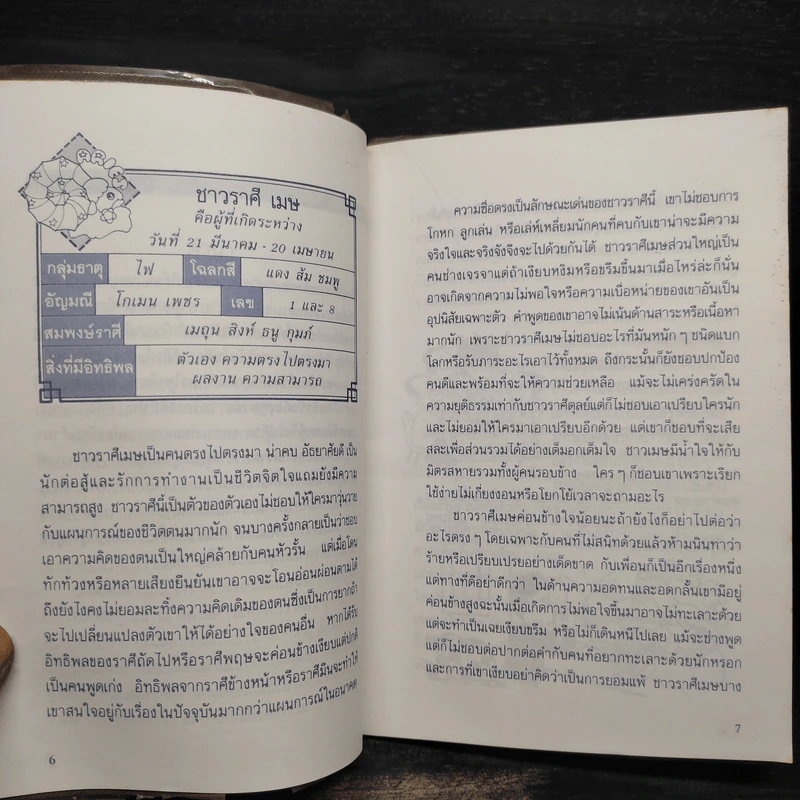 ชาวราศี เมษ
คือผู้ที่เกิดระหว่าง
วันที่ 21 มีนาคม - 20 เมษายน
กลุ่มธาตุ ไฟ โฉลกสี แดง ส้ม ชมพู
อัญมณี โกเมน เพชร เลข 1 และ 8
สมพงษ์ราศี เมถุน สิงห์ ธนู กุมภ์
สิ่งที่มีอิทธิพล ตัวเอง ความตรงไปตรงมา
ผลงาน ความสามารถ
ชาวราศีเมษเป็นคนตรงไปตรงมา น่าคบ อัธยาศัยดี เป็น
นักต่อสู้และรักการทำงานเป็นชีวิตจิตใจแถมยังมีความ
สามารถสูง ชาวราศีนี้เป็นตัวของตัวเองไม่ชอบให้ใครมาวุ่นวาย
กับแผนการณ์ของชีวิตตนมากนัก จนบางครั้งกลายเป็นว่าชอบ
เอาความคิดของตนเป็นใหญ่คล้ายกับคนหัวรั้น แต่เมื่อโดน
ทักท้วงหรือหลายเสียงยืนยันเขาอาจจะโอนอ่อนผ่อนตามได้
ถึงยังไงคงไม่ยอมละทิ้งความคิดเดิมของตนซึ่งเป็นการยากถ้า
จะไปเปลี่ยนแปลงตัวเขาให้ได้อย่างใจของคนอื่น หากได้รับ
อิทธิพลของราศีถัดไปหรือราศีพฤษะจะค่อนข้างเงียบแต่ปกติ
เป็นคนพูดเก่ง อิทธิพลจากราศีข้างหน้าหรือราศีมีนจะทำให้
เขาสนใจอยู่กับเรื่องในปัจจุบันมากกว่าแผนการณ์ในอนาคต
6
ความซื่อตรงเป็นลักษณะเด่นของชาวราศีนี้ เขาไม่ชอบการ
โกหก ลูกเล่น หรือเล่ห์เหลี่ยมนักคนที่คบกับเขาน่าจะมีความ
จริงใจและจริงจังจึงจะไปด้วยกันได้ ชาวราศีเมษส่วนใหญ่เป็น
คนช่างเจรจาแต่ถ้าเงียบหงิมหรือขรึมขึ้นมาเมื่อไหร่ล่ะก็นั่น
อาจเกิดจากความไม่พอใจหรือความเบื่อหน่ายของเขาอันเป็น
อุปนิสัยเฉพาะตัว คำพูดของเขาอาจไม่เน้นด้านสาระหรือเนื้อหา
มากนัก เพราะชาวราศีเมษไม่ชอบอะไรที่มันหนัก ๆ ชนิดแบก
โลกหรือรับภาระอะไรเอาไว้ทั้งหมด ถึงกระนั้นก็ยังชอบปกป้อง
คนดีและพร้อมที่จะให้ความช่วยเหลือ แม้จะไม่เคร่งครัดใน
ความยุติธรรมเท่ากับชาวราศีตุลย์แต่ก็ไม่ชอบเอาเปรียบใครนัก
และไม่ยอมให้ใครมาเอาเปรียบอีกด้วย แต่เขาก็ชอบที่จะเสีย
สละเพื่อส่วนรวมได้อย่างเต็มอกเต็มใจ ชาวเมษมีน้ำใจให้กับ
มิตรสหายรวมทั้งผู้คนรอบข้าง ใคร ๆ ก็ชอบเขาเพราะเรียก
ใช้ง่ายไม่เกี่ยงงอนหรือโยกโย้เวลาจะถามอะไร
ชาวราศีเมษค่อนข้างใจน้อยนะถ้ายังไงก็อย่าไปต่อว่า
อะไรตรง ๆ โดยเฉพาะกับคนที่ไม่สนิทด้วยแล้วห้ามนินทาว่า
ร้ายหรือเปรียบเปรยอย่างเด็ดขาด กับเพื่อนก็เป็นอีกเรื่องหนึ่ง
แต่ทางที่ดีอย่าดีกว่า ในด้านความอดทนและอดกลั้นเขามีอยู่
ค่อนข้างสูงฉะนั้นเมื่อเกิดการไม่พอใจขึ้นมาอาจไม่ทะเลาะด้วย
แต่จะทำเป็นเฉยเงียบขรึม หรือไม่ก็เดินหนีไปเลย แม้จะช่างพูด
แต่ก็ไม่ชอบต่อปากต่อคำกับคนที่อยากทะเลาะด้วยนักหรอก
และการที่เขาเงียบอย่าคิดว่าเป็นการยอมแพ้ ชาวราศีเมษบาง
7